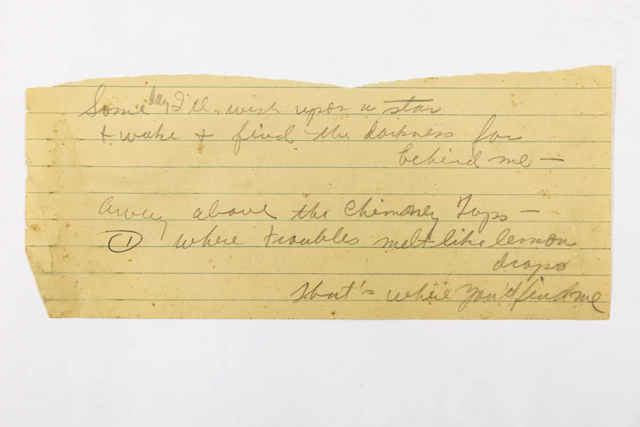 Some day I'll wish upon a star
+ wake + find the darkness far
behind me —
Away above the Chimney Tops —
① where troubles melt like lemon
drops
that's where you'd find me